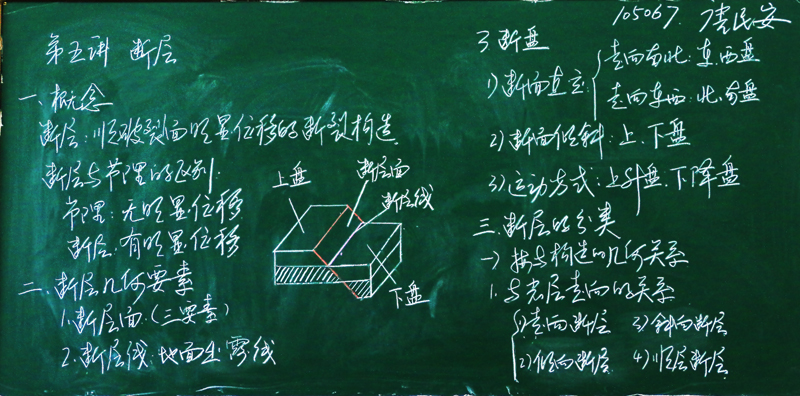 第五讲 断层
一、概念
断层：顺破裂面明显位移的断裂构造
断层与节理的区别：
节理：无明显位移
断层：有明显位移
二、断层几何要素
1.断层面（三要素）
2.断层线：地面出露线
上盘
断层面
断层线
下盘
105067. 唐民安
3 断盘
1)断面直立：走向南北：东.西盘
走向东西：北.南盘
2)断面倾斜：上、下盘
3)运动方式：上升盘.下降盘
三、断层的分类
一)按与构造的几何关系
1.与岩层走向的关系
1)走向断层 3)斜向断层
2)倾向断层. 4)顺层断层